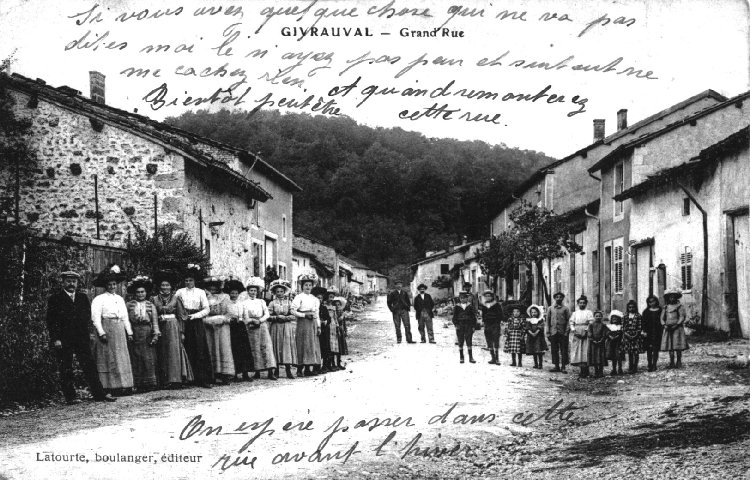 Si vous avez quelque chose qui ne va pas
GIVRAUVAL – Grand'Rue
dites moi le n'ayez pas peur et surtout ne
me cachez rien
Bientôt peut être et quand remonterez
cette rue.
On espère passer dans cette
rue avant l'hiver
Latourte, boulanger, éditeur